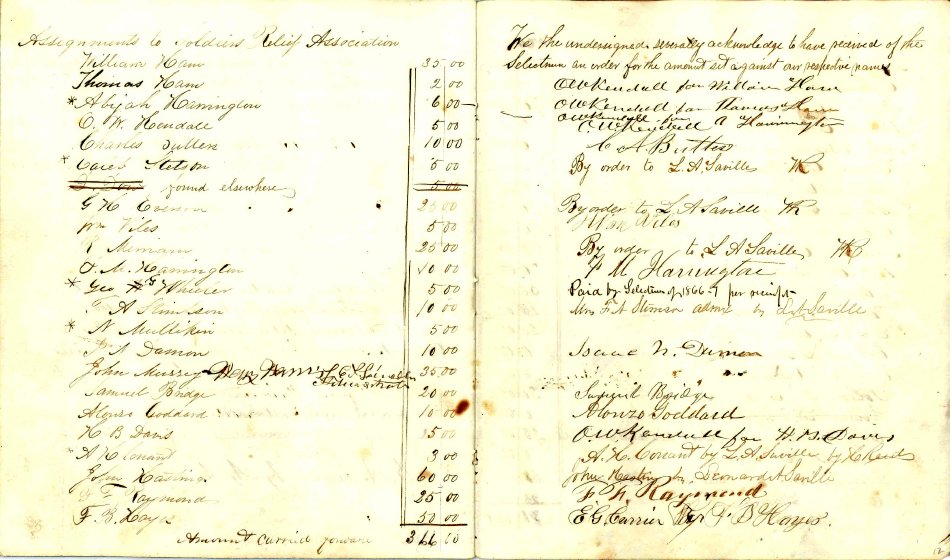 Assignments to Soldiers Relief Association
William Ham 35 00
Thomas Ham 2 00
* Abijah Harrington 6 00
O. W. Kendale 5 00
Charles Butters " " 10 00
* Caleb Stetson 5 00
found elsewhere 5 00
G H 25 00
Wm Viles 5 00
R Merriam 25 00
J. M. Harrington 10 00
* Geo Wheeler 5 00
F A Stimson 10 00
* N Mullikin 5 00
Damon 10 00
John Murrey 35 00
Samuel Bridge 20 00
Alonzo Goddard 10 00
H B Davis 5 00
* A H 3 00
John Hastings 60 00
F F Raymond 25 00
F. B. Hayes 50 00
Amount carried forward 366 00
We the undersigned severally acknowledge to have received of the
Selectmen an order for the amount set against our respective names
O W Kendall for William Ham
O W Kendall for Thomas Ham
O W Kendall for
O W Kendall A Harrington
C A Butters
By order to L. A Saville
By order to L A Saville
Wm Viles
By order to L A Saville
J M Harrington
Paid by Selectmen of 1866-7 per receipt
Mrs F. A Stimson admx by L A Saville
Isaac N. Damon
Samuel Bridge
Alonzo Goddard
O W Kendall for H. B. Davis
A. H. Conant by L A Saville by
John Hastings by Leonard A Saville
F F Raymond
E. G. Currier for F B Hayes.